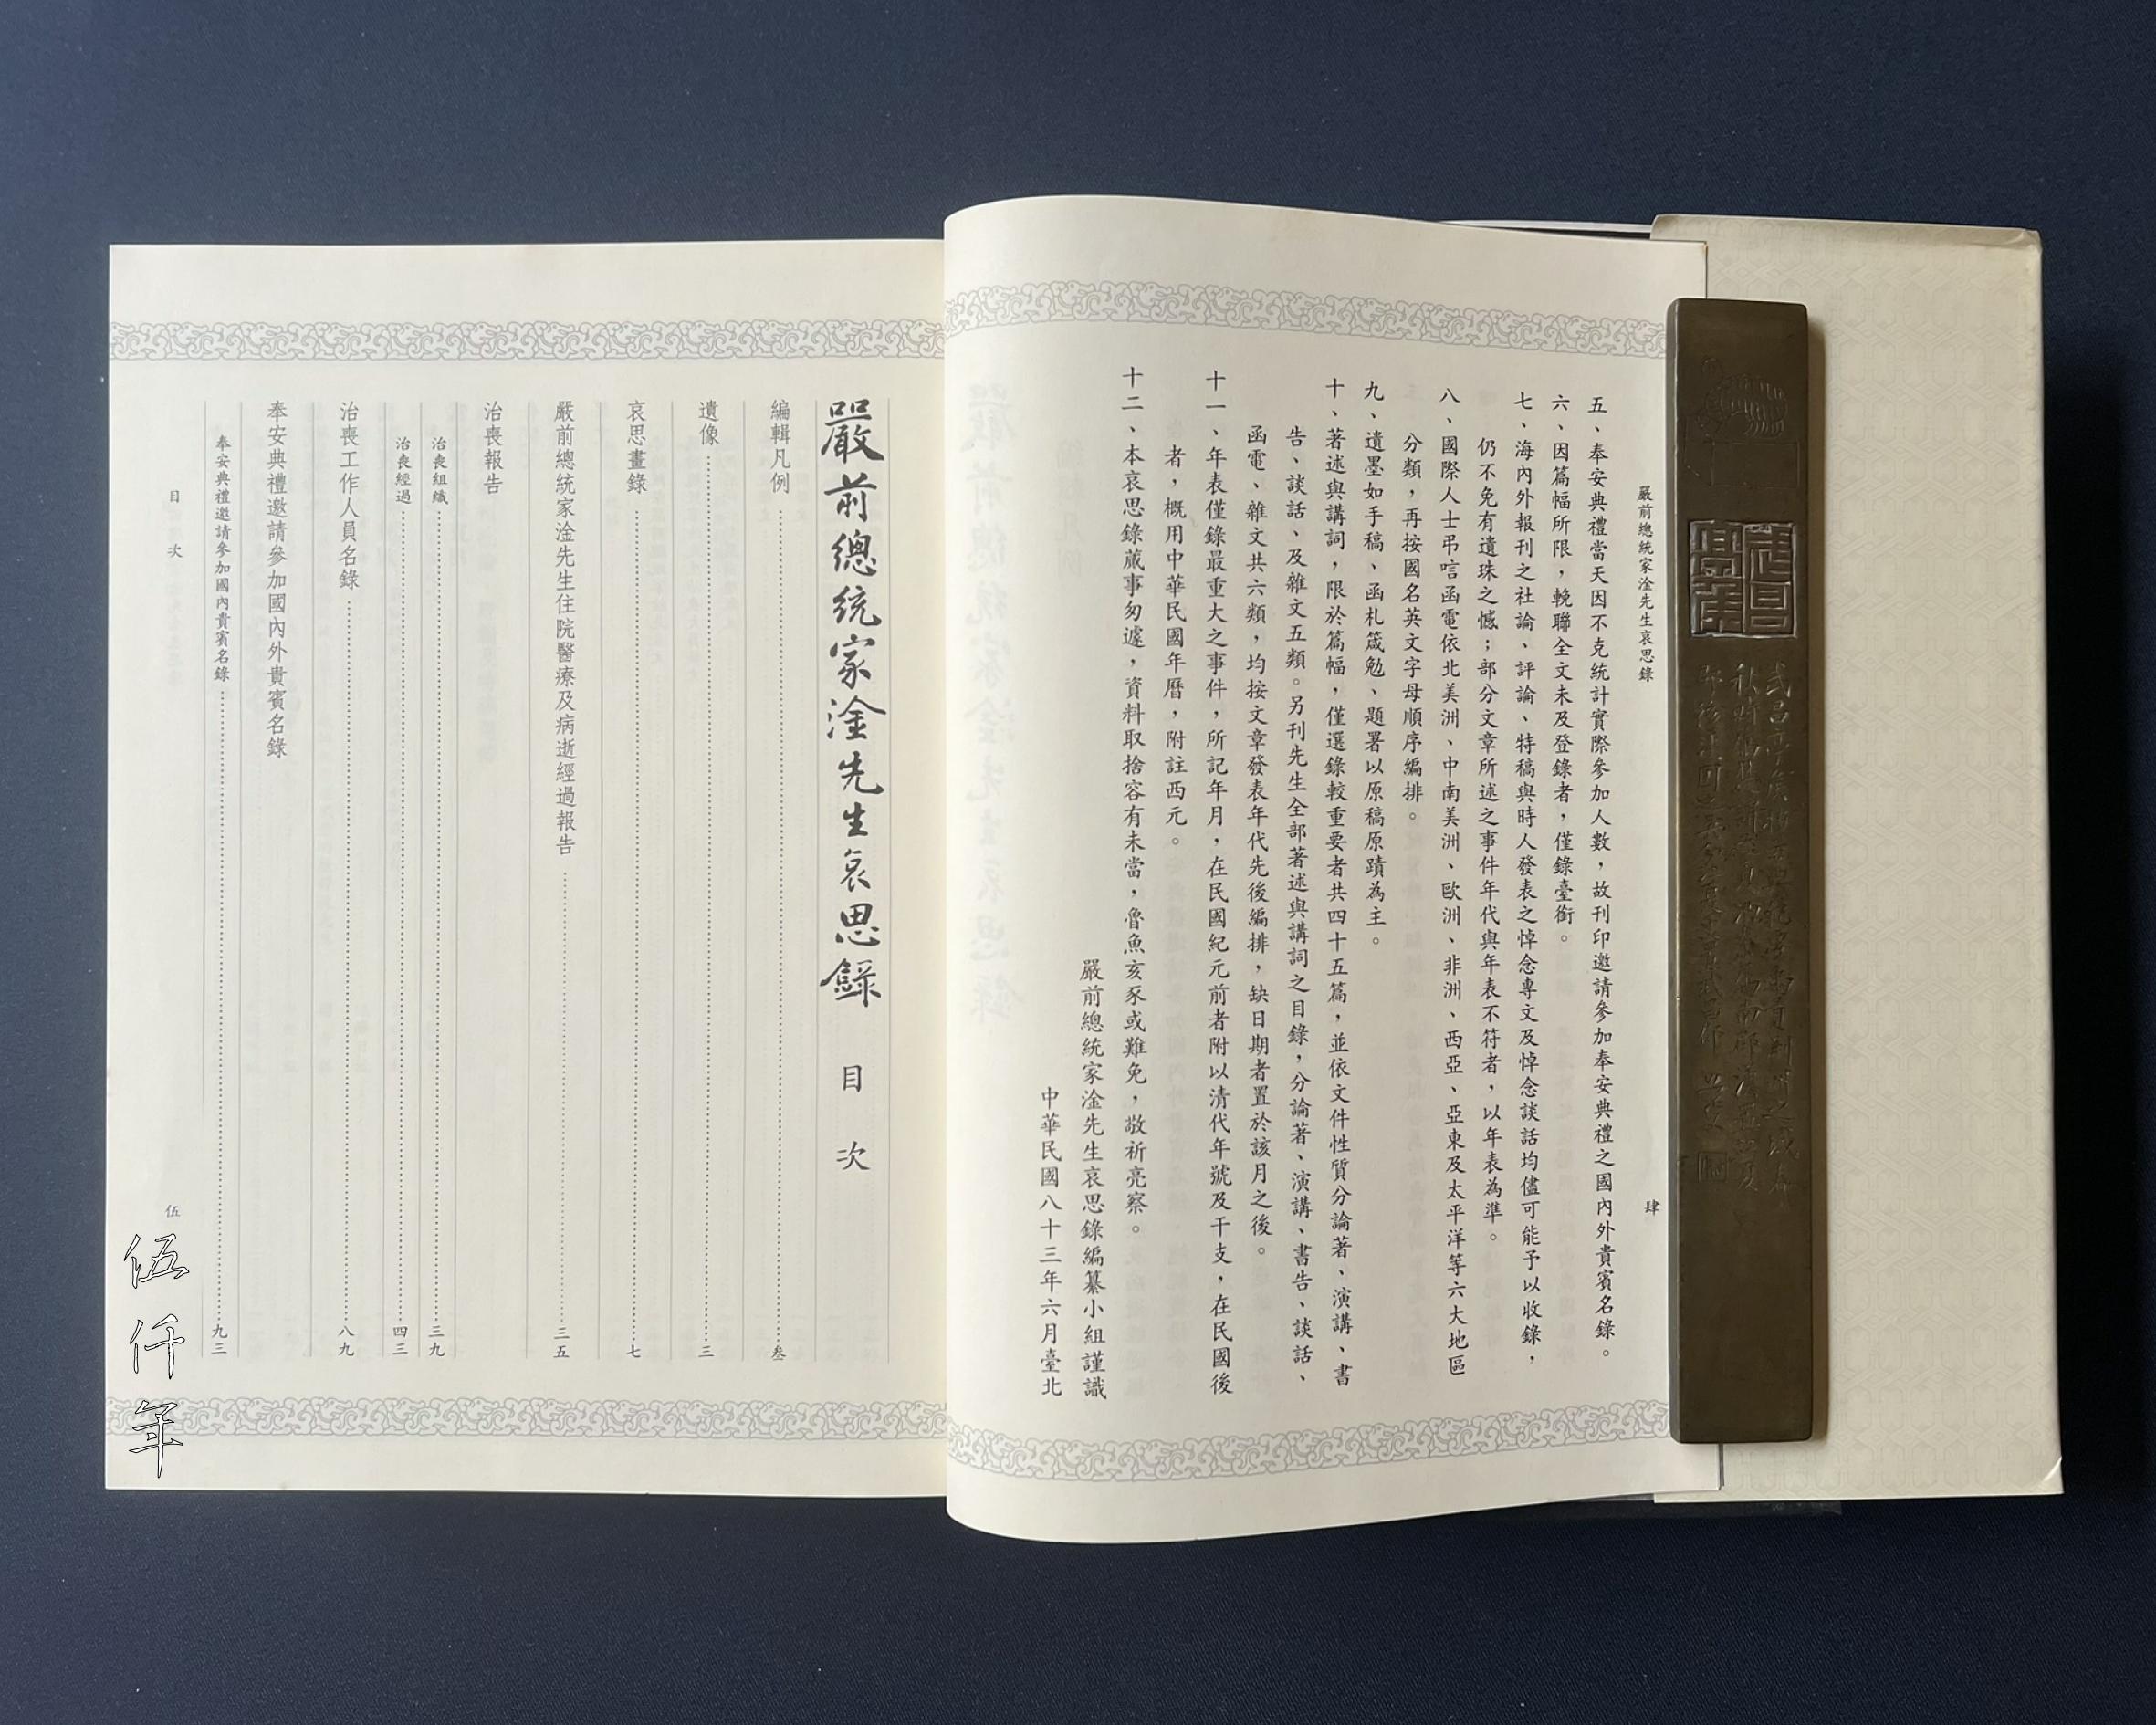 嚴前總統家淦先生哀思錄
肆
五、奉安典禮當天因不克統計實際參加人數，故刊印邀請參加奉安典禮之國內外貴賓名錄。
六、因篇幅所限，輓聯全文未及登錄者，僅錄臺銜。
七、海內外報刊之社論、評論、特稿與時人發表之悼念專文及悼念談話均儘可能予以收錄，
仍不免有遺珠之憾；部分文章所述之事件年代與年表不符者，以年表為準。
八、國際人士弔唁函電依北美洲、中南美洲、歐洲、非洲、西亞、亞東及太平洋等六大地區
分類，再按國名英文字母順序編排。
九、遺墨如手稿、函札箴勉、題署以原稿原蹟為主。
十、著述與講詞，限於篇幅，僅選錄較重要者共四十五篇，並依文件性質分論著、演講、書
告、談話、及雜文五類。另刊先生全部著述與講詞之目錄，分論著、演講、書告、談話、
函電、雜文共六類，均按文章發表年代先後編排，缺日期者置於該月之後。
十一、年表僅錄最重大之事件，所記年月，在民國紀元前者附以清代年號及干支，在民國後
者，概用中華民國年曆，附註西元。
十二、本哀思錄蕆事匆遽，資料取捨容有未當，魯魚亥豕或難免，敬祈亮察。
嚴前總統家淦先生哀思錄編纂小組謹識
中華民國八十三年六月臺北
嚴前總統家淦先生哀思錄 目次
編輯凡例……叁
遺像……三
哀思畫錄……七
嚴前總統家淦先生住院醫療及病逝經過報告……三五
治喪報告
治喪組織……三九
治喪經過……四三
治喪工作人員名錄……八九
奉安典禮邀請參加國內外貴賓名錄
奉安典禮邀請參加國內貴賓名錄……九三
目次
伍
伍仟年